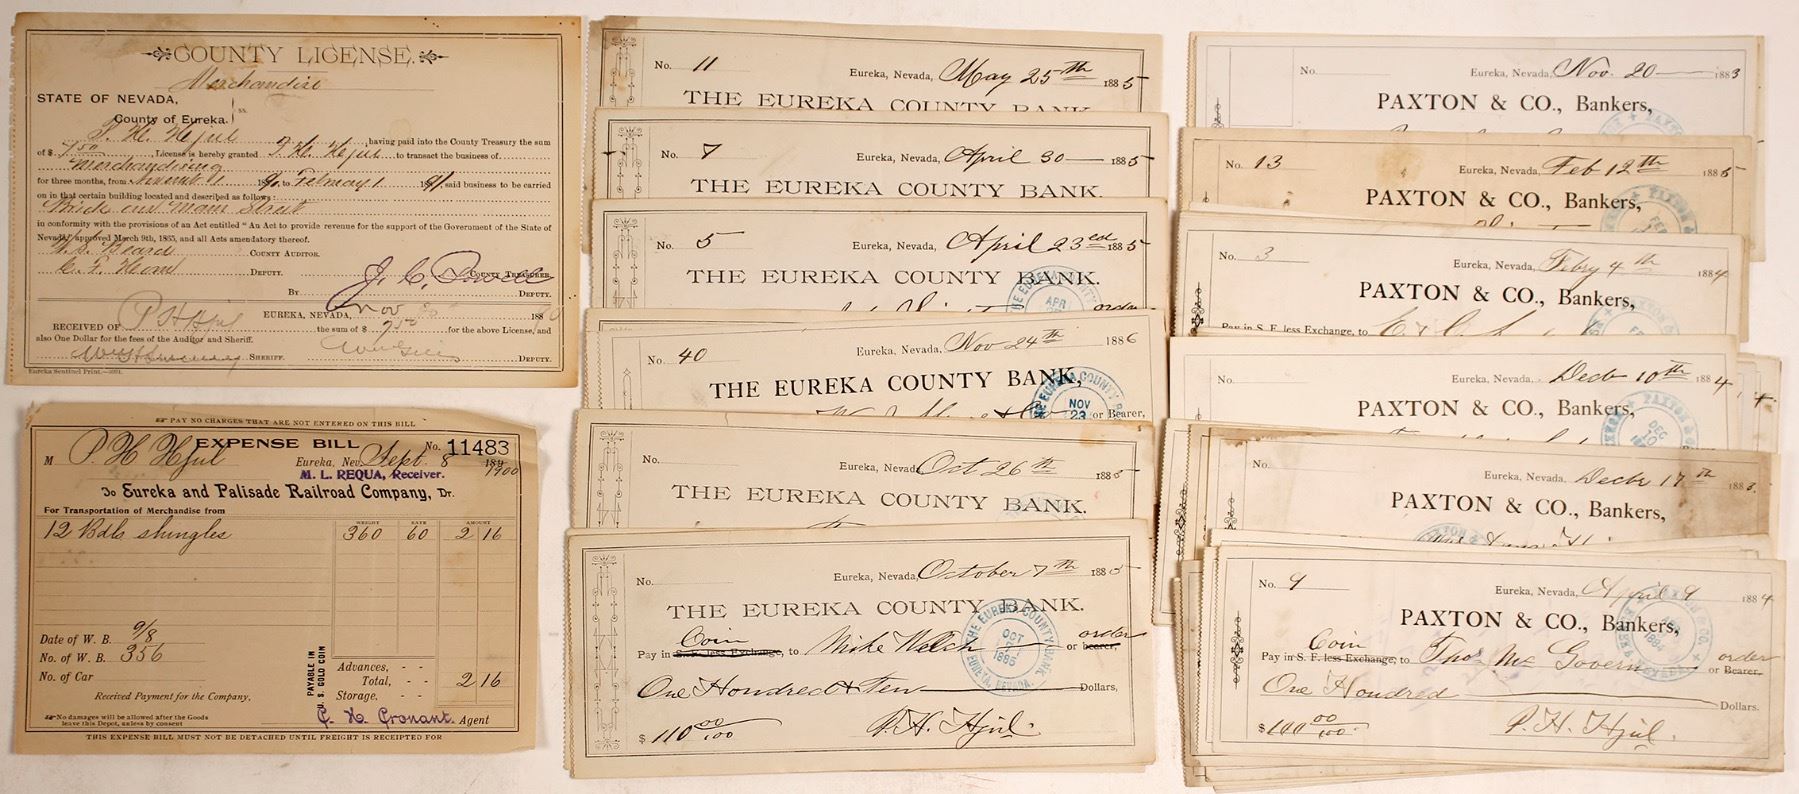 COUNTY LICENSE.
Merchandise
STATE OF NEVADA,
County of Eureka. } ss.
P. H. Hjul having paid into the County Treasury the sum
of $ 7 50, License is hereby granted P. H. Hjul to transact the business of
Merchandising
for three months, from November 1 1890, to February 1 1891, said business to be carried
on in that certain building located and described as follows:
Brick on Main Street
in conformity with the provisions of an Act entitled "An Act to provide revenue for the support of the Government of the State of
Nevada," approved March 9th, 1865, and all Acts amendatory thereof.
COUNTY AUDITOR.
DEPUTY.
COUNTY TREASURER.
By DEPUTY.
EUREKA, NEVADA, Nov 1890
RECEIVED OF P H Hjul the sum of $ 7 50 for the above License, and
also One Dollar for the fees of the Auditor and Sheriff.
SHERIFF.
DEPUTY.
Eureka Sentinel Print.
PAY NO CHARGES THAT ARE NOT ENTERED ON THIS BILL
EXPENSE BILL No. 11483
M P. H Hjul Eureka, Nev. Sept. 8 1900
M. L. REQUA, Receiver.
To Eureka and Palisade Railroad Company, Dr.
For Transportation of Merchandise from
WEIGHT RATE AMOUNT
12 Bdls shingles 360 60 2 16
Date of W. B. 9/8
No. of W. B. 356
No. of Car
PAYABLE IN U. S. GOLD COIN
Advances, - -
Total, - - 2 16
Storage, -
Received Payment for the Company,
No damages will be allowed after the Goods
leave this Depot, unless by consent
Agent
THIS EXPENSE BILL MUST NOT BE DETACHED UNTIL FREIGHT IS RECEIPTED FOR
No. 11 Eureka, Nevada, May 25th 1885
THE EUREKA COUNTY BANK
No. 7 Eureka, Nevada, April 30 1885
THE EUREKA COUNTY BANK.
No. 5 Eureka, Nevada, April 23ed 1885
THE EUREKA COUNTY BANK.
THE EUREKA COUNTY
APR
order
No. 40 Eureka, Nevada, Nov 24th 1886
THE EUREKA COUNTY BANK,
THE EUREKA COUNTY BANK
NOV
23
or Bearer,
No. Eureka, Nevada, Oct 26th 1885
THE EUREKA COUNTY BANK.
No. Eureka, Nevada, October 7th 1885
THE EUREKA COUNTY BANK.
Coin order
Pay in S. F. less Exchange, to Mike Welch or bearer,
One Hondred & Ten Dollars,
$ 110 00/100 P. H. Hjul.
THE EUREKA COUNTY BANK.
OCT
1885
EUREKA, NEVADA.
No. Eureka, Nevada, Nov. 20 1883
PAXTON & CO., Bankers,
No. 13 Eureka, Nevada, Feb 12th 1885
PAXTON & CO., Bankers,
No. 3 Eureka, Nevada, Febry 4th 1884
PAXTON & CO., Bankers,
Pay in S. F. less Exchange, to
No. Eureka, Nevada, Decbr 10th 1884
PAXTON & CO., Bankers,
PAXTON & CO.
DEC
10
No. Eureka, Nevada, Decbr 17th 1883.
PAXTON & CO., Bankers,
No. 9 Eureka, Nevada, April 9 1884
PAXTON & CO., Bankers,
Coin order
Pay in S. F. less Exchange, to Thos Mc Govern or Bearer.
One Hondred Dollars.
$ 100 00/100 P. H. Hjul.